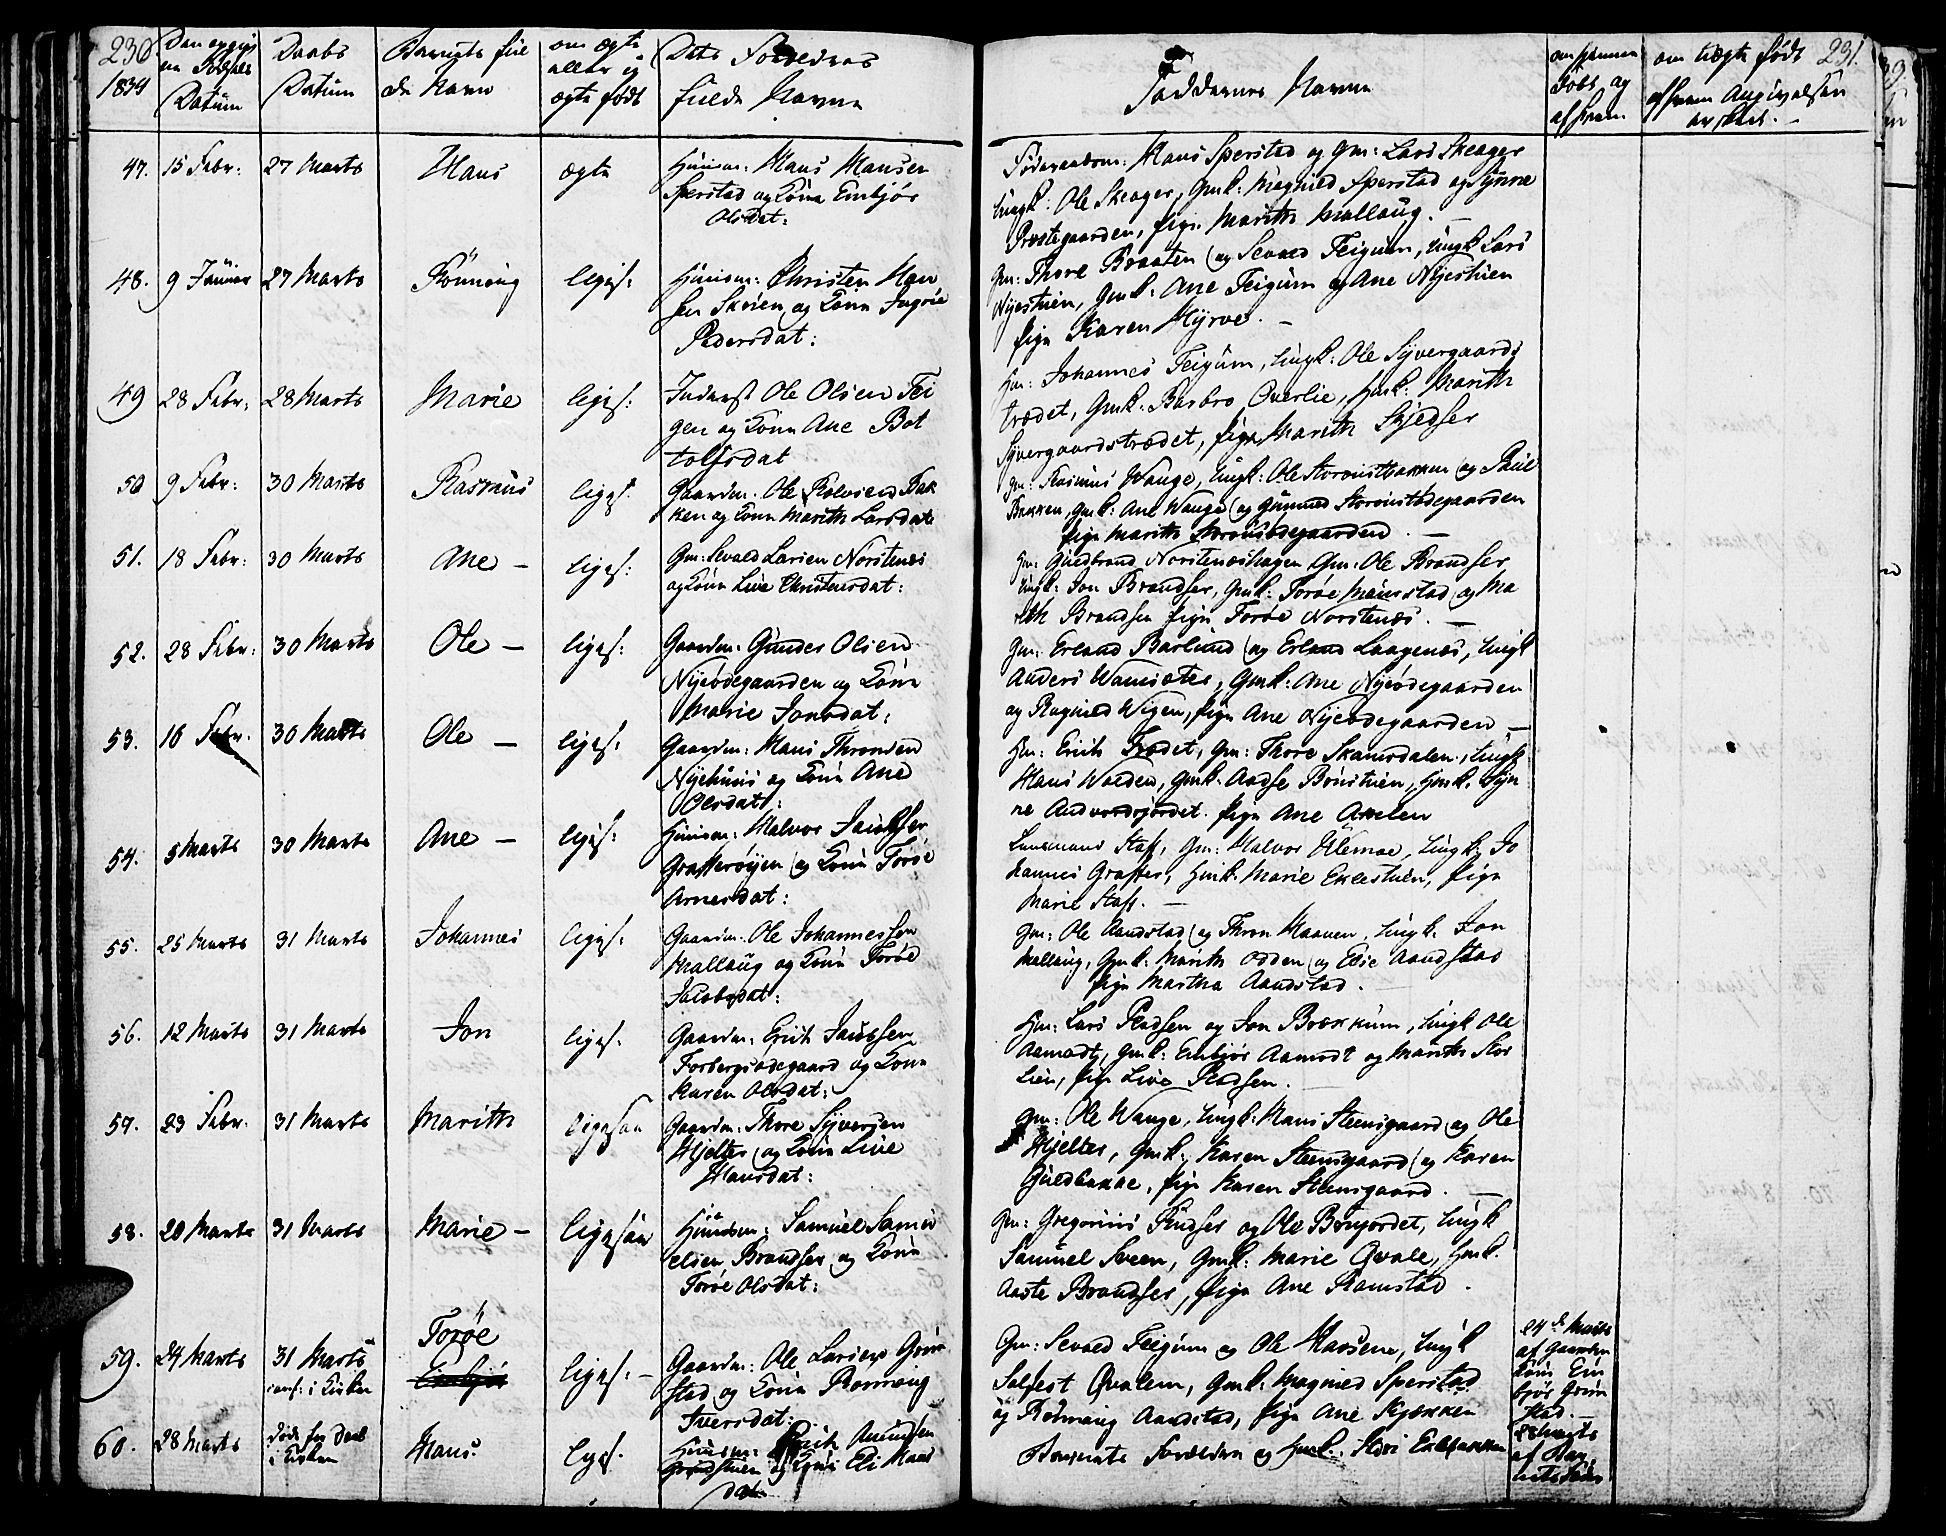 230
1834
Den opgiv
ne Fødsels
Datum
Daabs
Datum
Barnets ful
de Navn
om ægte
eller ej
ægte født
Dets Forældres
fulde Navne
47. 15 Febr: 27 Marts Hans ægte
Huusm: Hans Hansen
Sperstad og Kone Embjør
Olsdat:
48. 9 Januar 27 Marts Rønnoug ligesf:
Huusm: Christen Han
sen Skrien og Kone Ingrie
Pedersdat:
49 28 Febr: 28 Marts Marie ligesf:
Inderst Ole Olsen Tei
gen og Kone Ane Bot
tolfsdat
50 9 Febr: 30 Marts Rasmus ligesf.
Gaardm: Ole Rolvsen Bak
ken og Kone Marith Larsdat
51. 18 Febr: 30 Marts Ane – ligesf:
Gm: Sevald Larsen Norstenæs
og Kone Live Christensdat:
52. 28 Febr: 30 Marts Ole – ligesf:
Gaardm: Gunder Olsen
Nyeødegaarden og Kone
Marie Jonsdat:
53. 16 Febr. 30 Marts Ole – ligesf:
Gaardm: Hans Thronsen
Nyehuus og Kone Ane
Olsdat:
54. 5 Marts 30 Marts Ane – ligesf:
Huusm: Halvor Jacobsen
Grafferøien og Kone Torøe
Arnesdat:
55. 25 Marts 31 Marts Johannes ligesf.
Gaardm: Ole Johannessen
Mallaug og Kone Torøe
Jacobsdat:
56. 12 Marts 31 Marts Jon ligesf.
Gaardm: Erich Jacobsen
Forbergsødegaard og Kone
Karen Olsdat:
57. 23 Febr. 31 Marts Marith ligesaa
Gaardm: Thore Syversen
Hjelter og Kone Live
Hansdat:
58. 20 Marts 31 Marts Marie – ligesaa
Huusm: Samuel Samu
elsen Brandser og Kone
Torøe Olsdat:
59. 24 Marts 31 Marts
i Kirken
Torøe
Embjør
ligesf. –
Gaardm: Ole Larsen Grøn
stad og Kone Rønnoug
Iversdat:
60. 28 Marts
død før Daab
i Kirken
Hans ligesf.
Huusm: Erich Amundsen
Grindstuen og Kone Eli Hans
dat.
Faddernes Navne
om hjemme
døbt og
af hvem
om uægte født 231.
af hvem Angivelsen
er skeet. –
Hans Sperstad og Gm: Lars Skeager
Ungk: Ole Skeager, Gmk: Magnild Sperstad og Synnæ
Præstegaarden, Pige Marith Mallaug. –
Gm: Thore Braaten og Sevald Teigum, Ungk Lars
Nyestuen, Gmk: Ane Teigum og Ane Nyestuen
Pige Karen Myrve. –
Hm: Johannes Teigum, Ungk: Ole Syvergaards
trædet, Gmk: Barbro Overlie, Hmk: Marith
Syvergaardstrædet, Pige Marith Skjedser
Gm: Rasmus Wange, Ungk: Ole Storøistbakken og Paul
Bakken, Gmk: Ane Wange og Gunnild Storøistødegaarden
Pige Marith Storøisødegaarden. –
Gm: Gudbrand Norstenæshagen Gm: Ole Brandser
Ungk: Jon Brandser, Gmk: Torøe Maurstad og Ma
rith Brandser Pige Torøe Norstenæs. –
Gm: Erland Barlund og Erland Laagenæs, Ungk
Anders Wamsæter, Gmk: Ane Nyeødegaarden
og Ragnild Wigen, Pige Ane Nyeødegaarden –
Hm: Erich Trædet, Gm: Thore Skamsdalen, Ungk:
Hans Wolden, Gmk: Aadse Bøistuen, Hmk. Syn
ne Andvordsjordet. Pige Ane Akelen
Lensmand Staff, Gm: Halvor Ulemoe, Ungk: Jo
hannes Graffer, Hmk: Marie Eklestuen, Pige
Marie Staff. –
Gm: Ole Aandstad og Thron Haanen, Ungk: Jon
Mallaug, Gmk: Marith Odden og Elie Aandstad
Pige Martha Aandstad.
Hm: Lars Rudsen og Jon Bækkum, Ungk Ole
Aamodt, Gmk: Embjør Aamodt og Marith Stor
lien, Pige Live Rudsen.
Gm: Ole Wange, Ungk: Hans Steensgaard og Ole
Hjelter, Gmk: Karen Steensgaard og Karen
Guldbakke, Pige Karen Steensgaard. –
Gm: Gregorius Rudser og Ole Bøejordet, Ungk
Samuel Sveen, Gmk: Marie Qvale, Hmk:
Aaste Brandser, Pige Ane Ramstad.
Gm: Sevald Teigum og Ole Haasene, Ungk
Solfest Qvalem, Gmk: Magnild Sperstad
og Rønnaug Aandstad, Pige Ane Kjækken
24de Marts
af Gaardm
Kone Em
bjør Grøn
stad.
Barnets Forældre og Hmk: Siri Eklebakken
28 Marts
af Bar
nets Fader